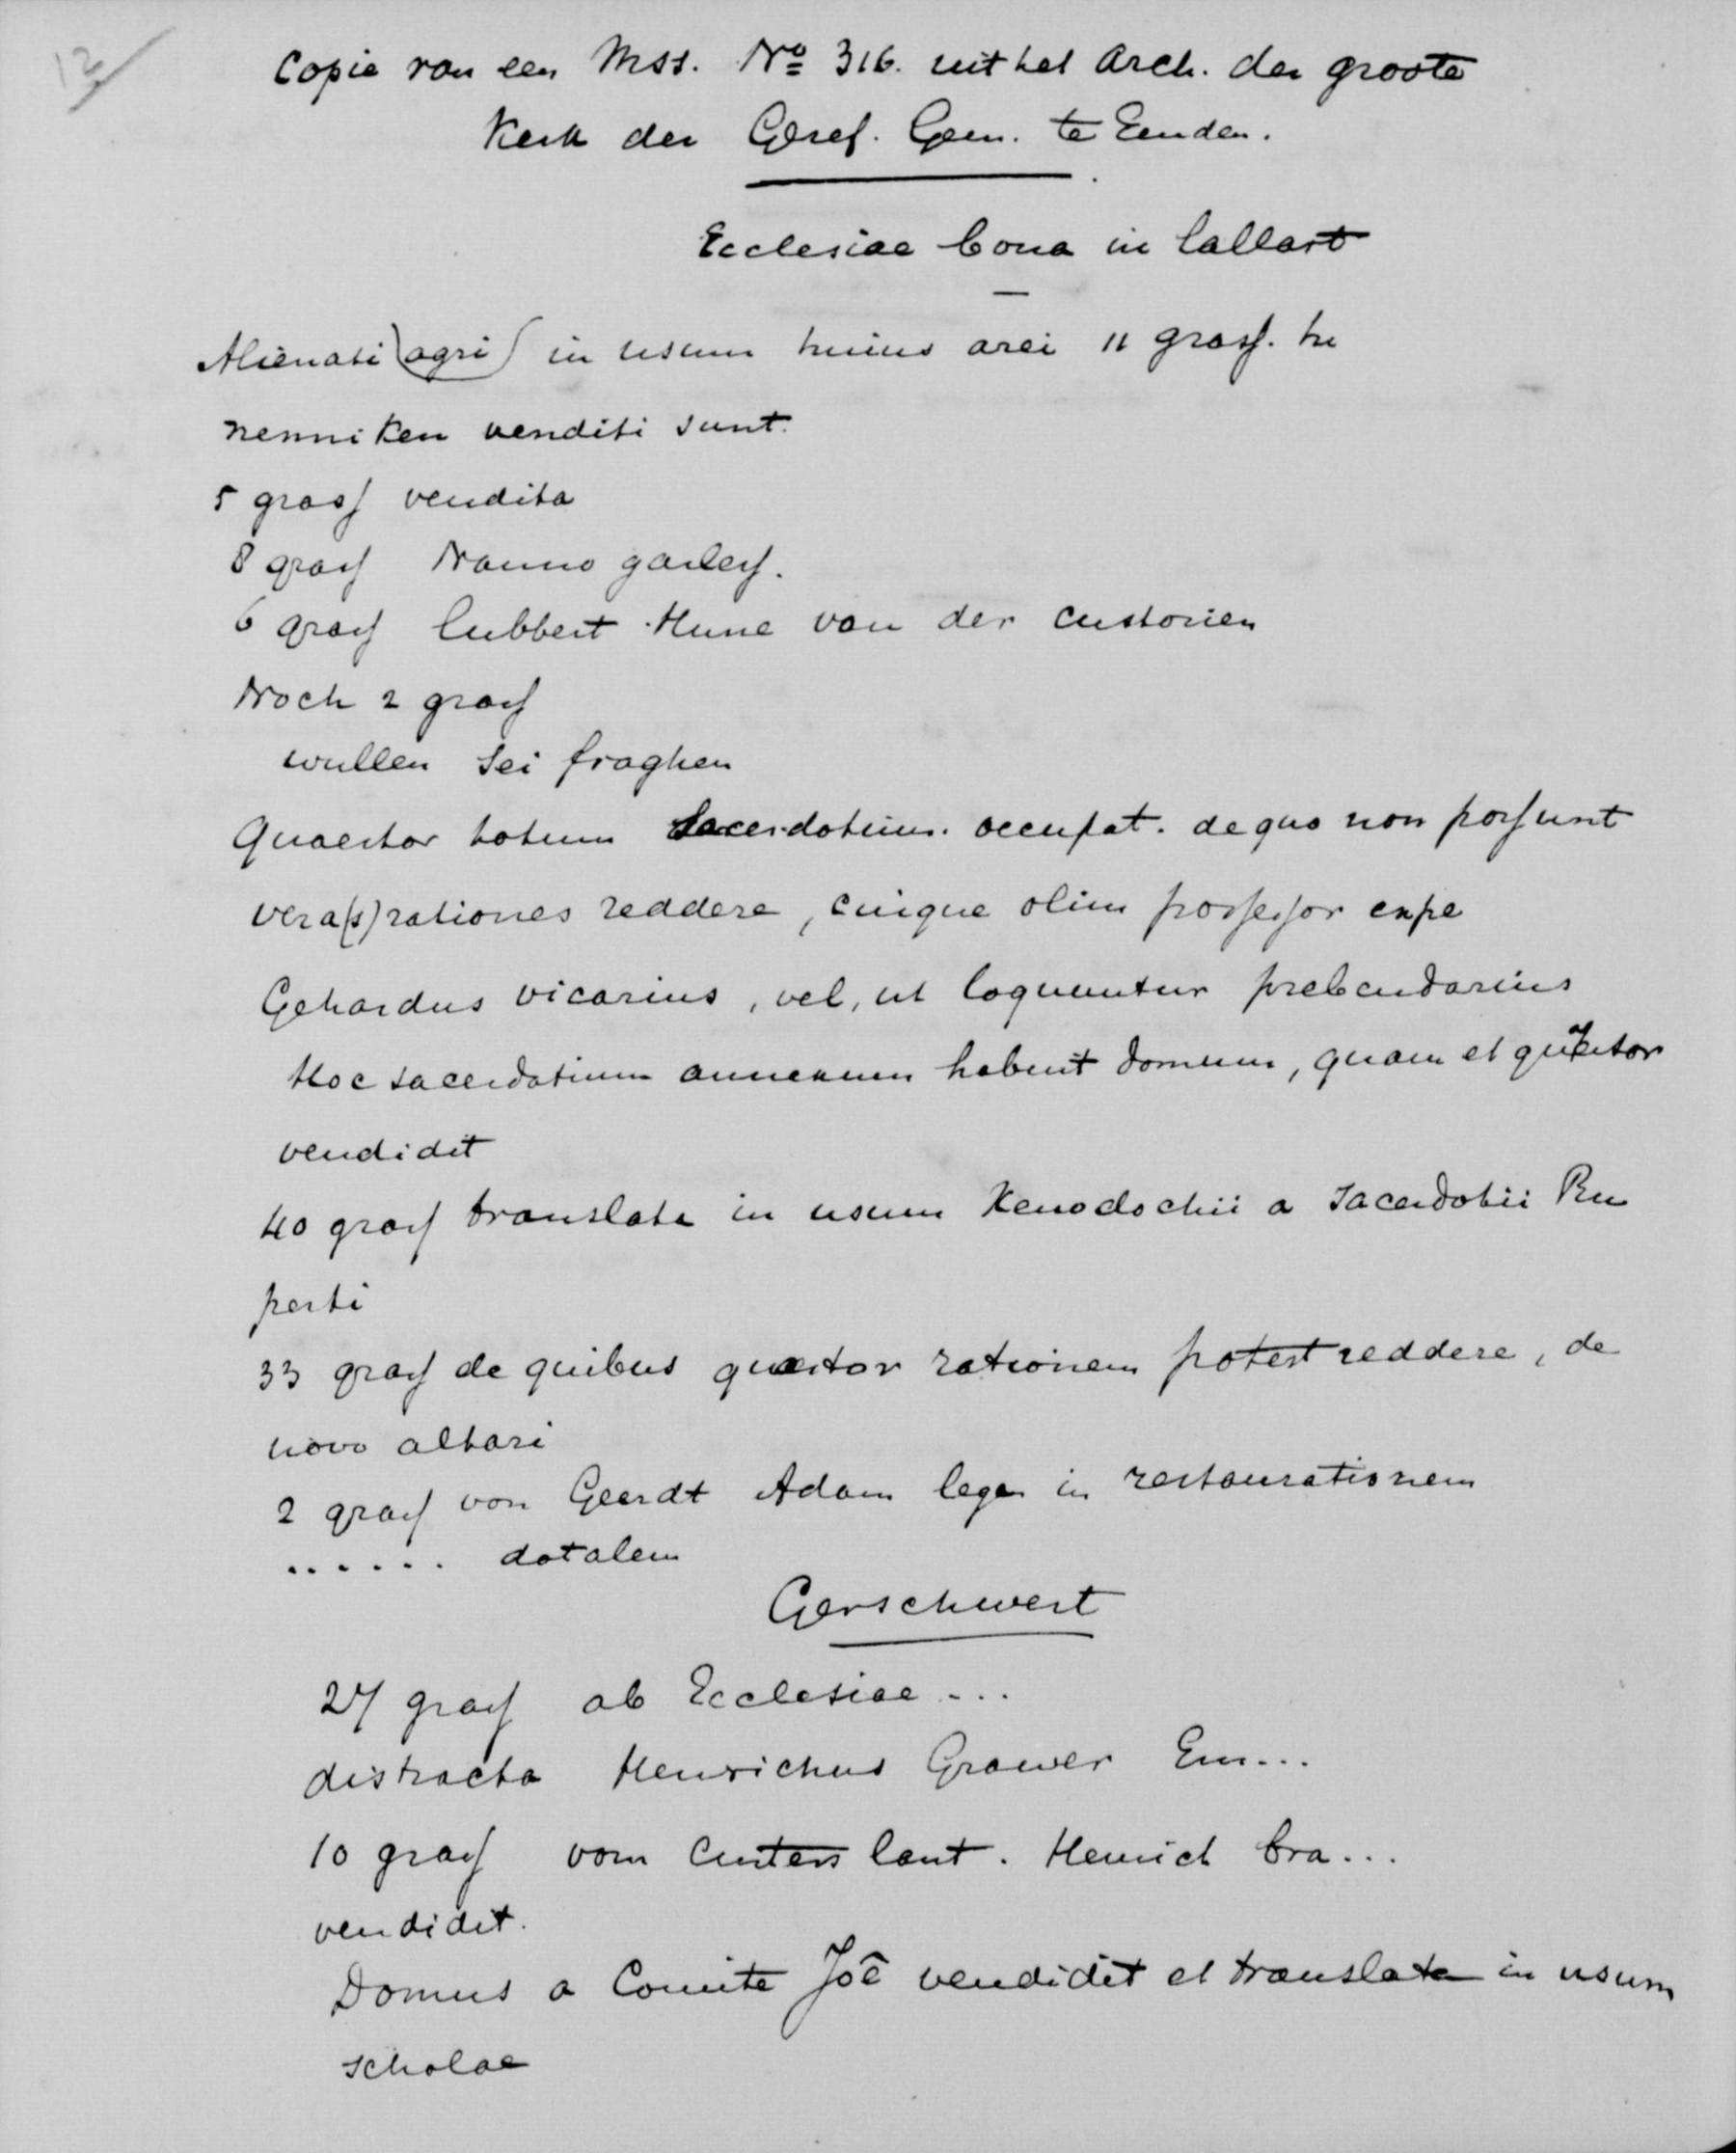 12
Copie van een Mss. No 316. uit het Arch. der groote
Kerk der Geref. Gem. te Emden.
Ecclesiae bona in lallart
Alienati (agri) in usum huius arci 11 grass. tu
nenniken venditi sunt.
5 grass vendita
8 grass Nanno garless.
6 grass lubbert Hune van der custorien
Noch 2 grass
wullen sei fraghen
Quaestor totum sacerdotium. occupat. de quo non possunt
vera(s) rationes reddere, cuique olim possessor expe
Gehardus vicarius, vel, ut loquuntur prebendarius
Hoc sacerdotium annexum habuit domum, quam et quaestor
vendidit
40 grass translata in usum Xenodochii a sacerdotii Ru
perti
33 grass de quibus quaestor rationem potest reddere, de
novo altari
2 grass von Geerdt Adam lege in restaurationem
...... dotalem
Gerschwert
27 grass ab Ecclesiae ...
distracta Henrichus Grawer Em...
10 grass vom Custers lant. Henrich bra...
vendidit.
Domus a Comite Joê vendidit et translata in usum
scholae